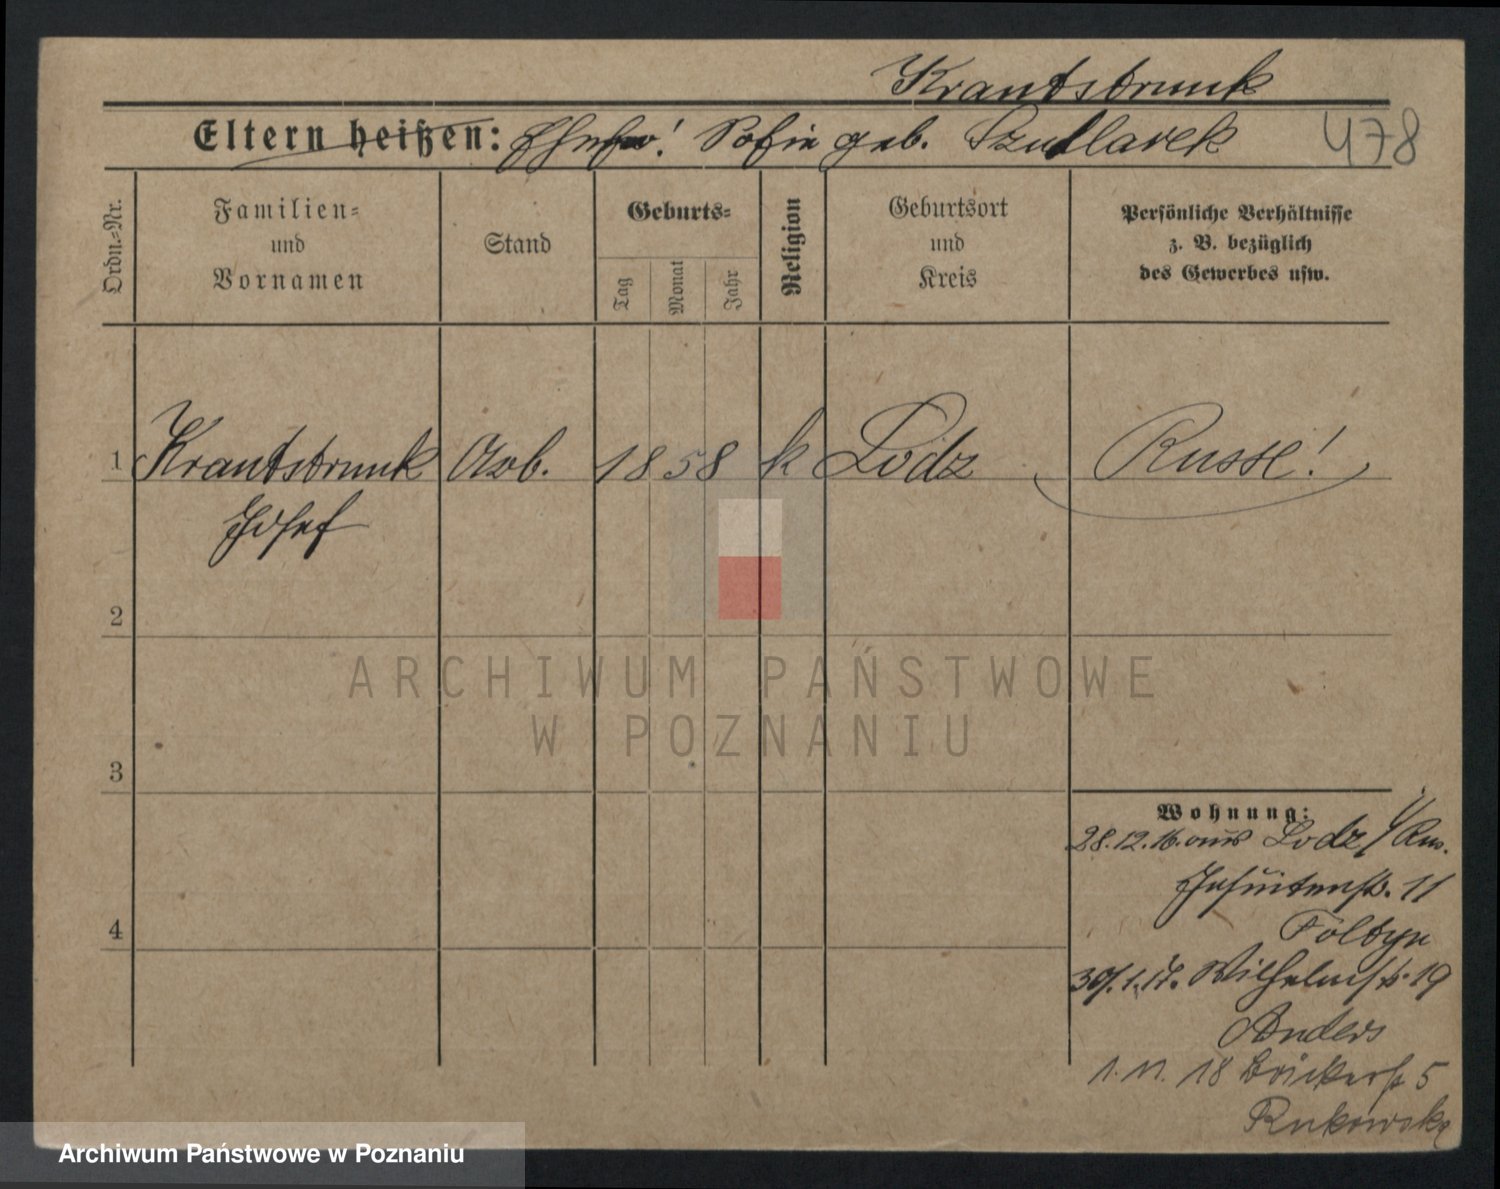 Krantsbrunk
Eltern heißen: Ehefr! Sofie geb. Szullarek 478
Ordn.=Nr.
Familien=
und
Vornamen
Stand
Geburts=
Tag
Monat
Jahr
Religion
Geburtsort
und
Kreis
Persönliche Verhältnisse
z. B. bezüglich
des Gewerbes usw.
1 Krantsbrunk Arb. 1858 k Lodz Russe!
Josef
2
ARCHIWUM PAŃSTWOWE
W POZNANIU
3
Wohnung:
28.12.16. aus Lodz / Rus.
Jesuitenstr. 11
Foltyn
30/.1.17. Wilhelmstr. 19
Anders
1. 11. 18 Bäckerstr 5
Rukowska
4
Archiwum Państwowe w Poznaniu